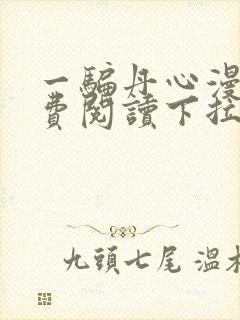 一騙丹心漫
費閱讀下拉
九頭七尾 溫木